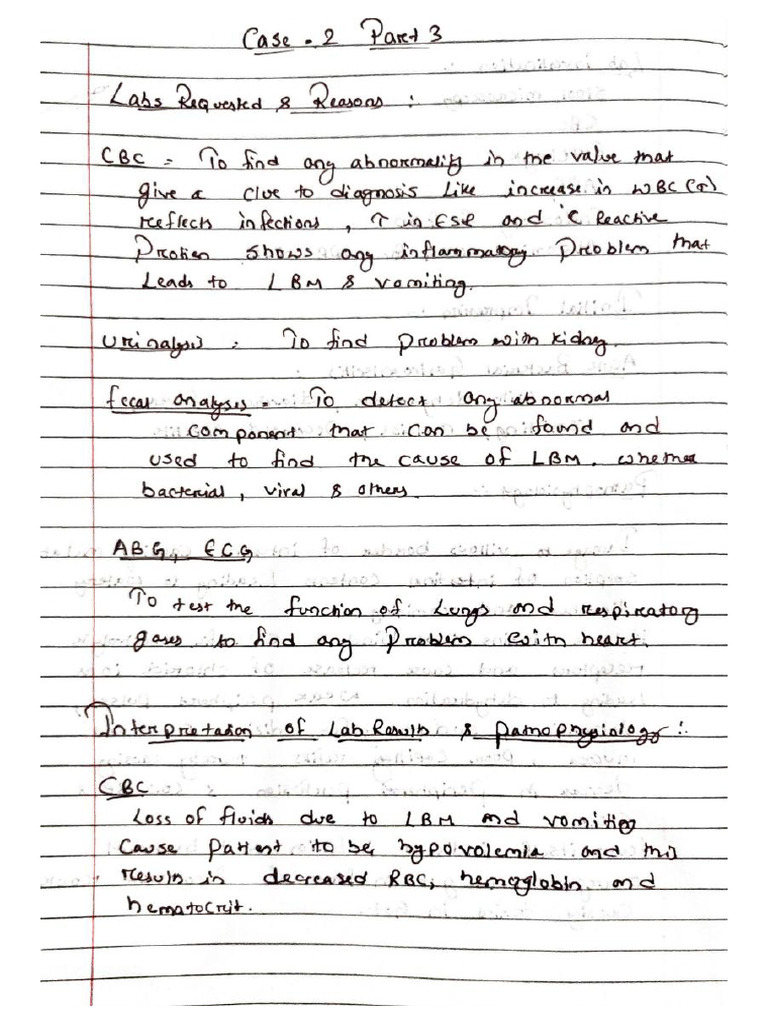 Case - 2 Part 3
Labs Requested & Reasons :
CBC = To find any abnormality in the value that
give a clue to diagnosis like increase in WBC (↑)
reflects infections, ↑ in ESR and C Reactive
Protien shows any inflammatory problem that
Leads to LBM & vomiting.
Urinalysis = To find problem with kidney.
fecal analysis = To detect any abnormal
component that can be found and
used to find the cause of LBM, whether
bacterial, viral & others.
ABG, ECG
To test the function of Lungs and respiratory
gases to find any problem with heart.
Interpretation of Lab Results & pathophysiology :
CBC
Loss of fluids due to LBM and vomiting
Cause patient to be hypovolemia and this
results in decreased RBC, hemoglobin and
hematocrit.